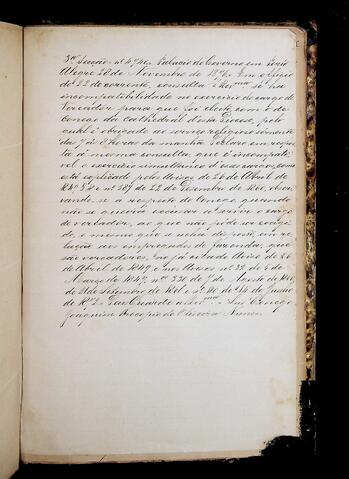 3ª Secção nº 4746. Palacio do Governo em Porto
Alegre 28 de Novembro de 18
de 22 do corrente, consulta V. Revma. se ha
incompatibilidade no exercicio do cargo de
Vereador para que foi eleito, com o de
Conego da Cathedral d'esta Diocese, pelo
qual é obrigado ao serviço religioso somente
das 7 ás 9 horas da manhã. Declaro em respos
ta á mesma consulta, que é incompati-
vel o exercicio simultaneo d'esses cargos, como
está explicado pelo Aviso de 26 de Abril de
1849 e nº 589 de 22 de Dezembro de 1860, obser-
vando-se a respeito do Conego, quando
não se queira excusar a servir o cargo
de vereador, ao que não póde ser obriga-
do, o mesmo que se acha disposto, em re-
lação aos empregados de fazenda, que
são vereadores, no já citado Aviso de 26
de Abril de 1849 e nos Avisos nº 32 de 6 de
Março de 1849, nº 320 de 7 de Junho de 1860,
de 21 de Setembro de 1861 e nº 40 de 14 de Junho
de Deus Guarde a V. Revma. Snr. Conego
Joaquim Procopio de Oliveira Nunes.